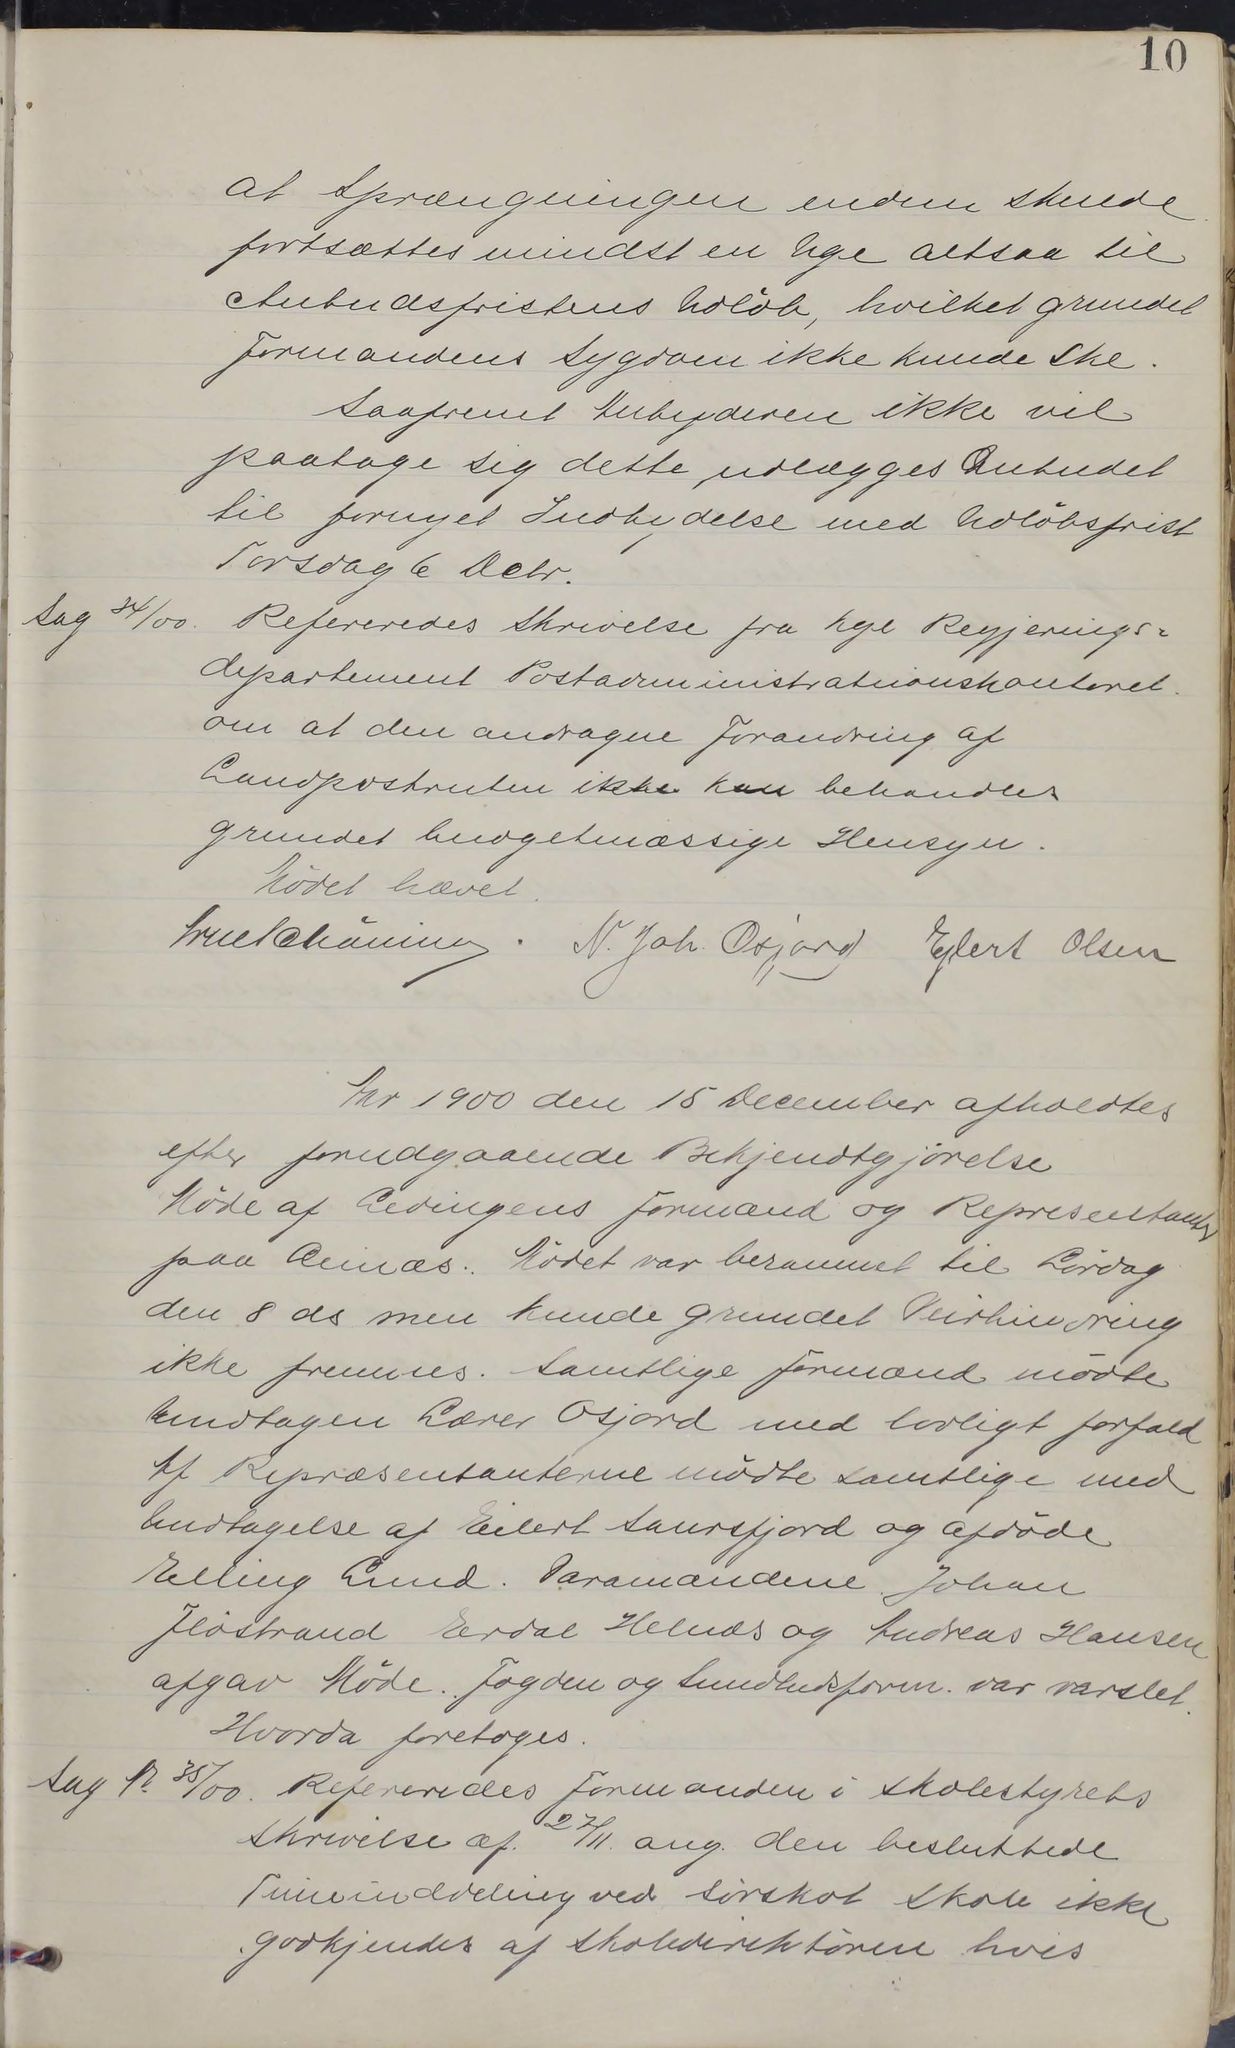 10
at Sprængningen endnu skulde
fortsættes mindst en Uge altsaa til
Anbudsfristens Udløb, hvilket grundet
Formandens Sygdom ikke kunde ske.
Saafremt Anbyderen ikke vil
paatage sig dette, udlægges Anbudet
til fornyet Indbydelse med Udløbsfrist
Torsdag 6 Decbr.
Sag 34/00. Refereredes Skrivelse fra kgl Regjerings-
departement Postadministrationskontoret
om at den andragne Forandring af
Landpostruten ikke kan behandles
grundet budgetmæssige Hensyn.
Mödet hævet.
N. Joh. Osjord Eylert Olsen
Aar 1900 den 15 December afholdtes
efter forudgaaende Bekjendtgjörelse
Möde af Gedingens Formænd og Representanter
paa Arnæs. Mödet var berammet til Lördag
den 8 ds men kunde grundet Veirhindring
ikke fremmes. Samtlige Formænd mödte
Undtagen Lærer Osjord med lovligt forfald
Af Repræsentanterne mödte samtlige med
Undtagelse af Eilert Saursfjord og afdöde
Elling Lund. Varamændene Johan
Flöstrand Erdal Helnæs og Andreas Hansen
afgav Möde. Fogden og Sundhedsform. var varslet.
Hvorda foretoges.
Sag N. 35/00. Refereredes Formanden i Skolestyrets
Skrivelse af 27/11. ang. den besluttede
Timeinddeling ved Sörskot Skole ikke
godkjendes af Skoledirektören hvis